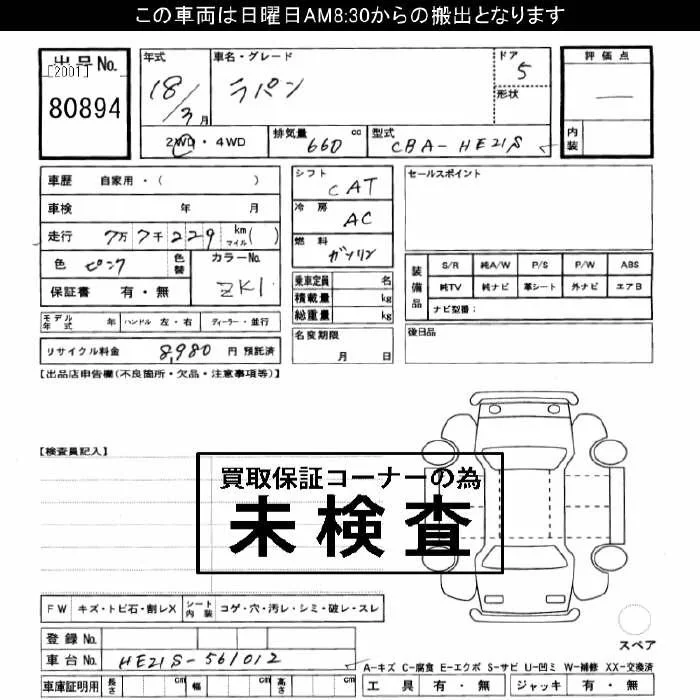 この車両は日曜日AM8:30からの搬出となります
出品No.
[2001]
80894
年式
18/3月
車名・グレード
ラパン
ドア
5
形状
評価点
—
内装
2WD・4WD
排気量 660 cc
型式 CBA-HE21S
車歴 自家用・( )
車検 年 月
走行 7万7千229 km マイル( )
色 ピンク 色替
カラーNo. ZK1
保証書 有・無
モデル年式 年 ハンドル 左・右 ディーラー・並行
リサイクル料金 8,980 円 預託済
シフト CAT
冷房 AC
燃料 ガソリン
乗車定員 名
積載量 kg
総重量 kg
名変期限
月 日
セールスポイント
装備品
S/R 純A/W P/S P/W ABS
純TV 純ナビ 革シート 外ナビ エアB
ナビ型番:
後日品
【出品店申告欄(不良箇所・欠品・注意事項等)】
【検査員記入】
買取保証コーナーの為
未検査
FW キズ・トビ石・割レX シート内装 コゲ・穴・汚レ・シミ・破レ・スレ
登録No.
車台No. HE21S-561012
車庫証明用 長さ cm 幅 cm 高さ cm
スペア
A-キズ C-腐食 E-エクボ S-サビ U-凹ミ W-補修 XX-交換済
工具 有・無 ジャッキ 有・無